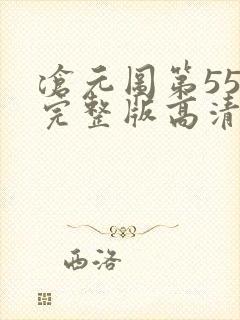 沧元图第55
完整版高清
西洛